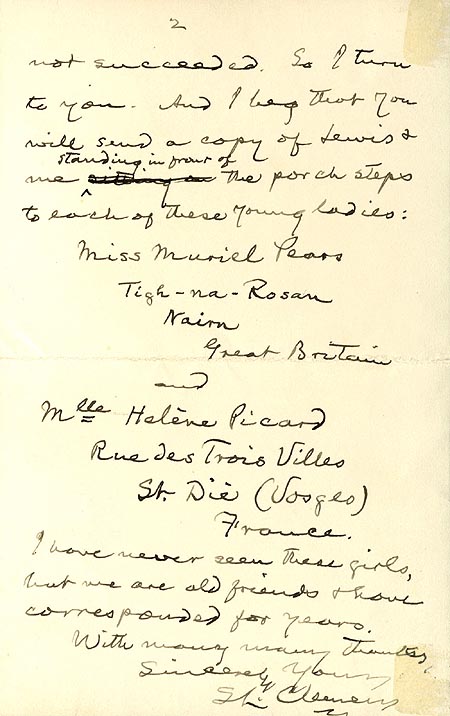 2
not succeeded. So I turn
to you. And I beg that you
will send a copy of Lewis &
standing in front of
me sitting on the porch steps
to each of these young ladies:
Miss Muriel Pears
Tigh-na-Rosan
Nairn
Great Britain
and
Mlle Helène Picard
Rue des Trois Villes
St. Dié (Vosges)
France.
I have never seen these girls,
but we are old friends & have
corresponded for years.
With many many thanks,
Sincerely Yours
SL. Clemens